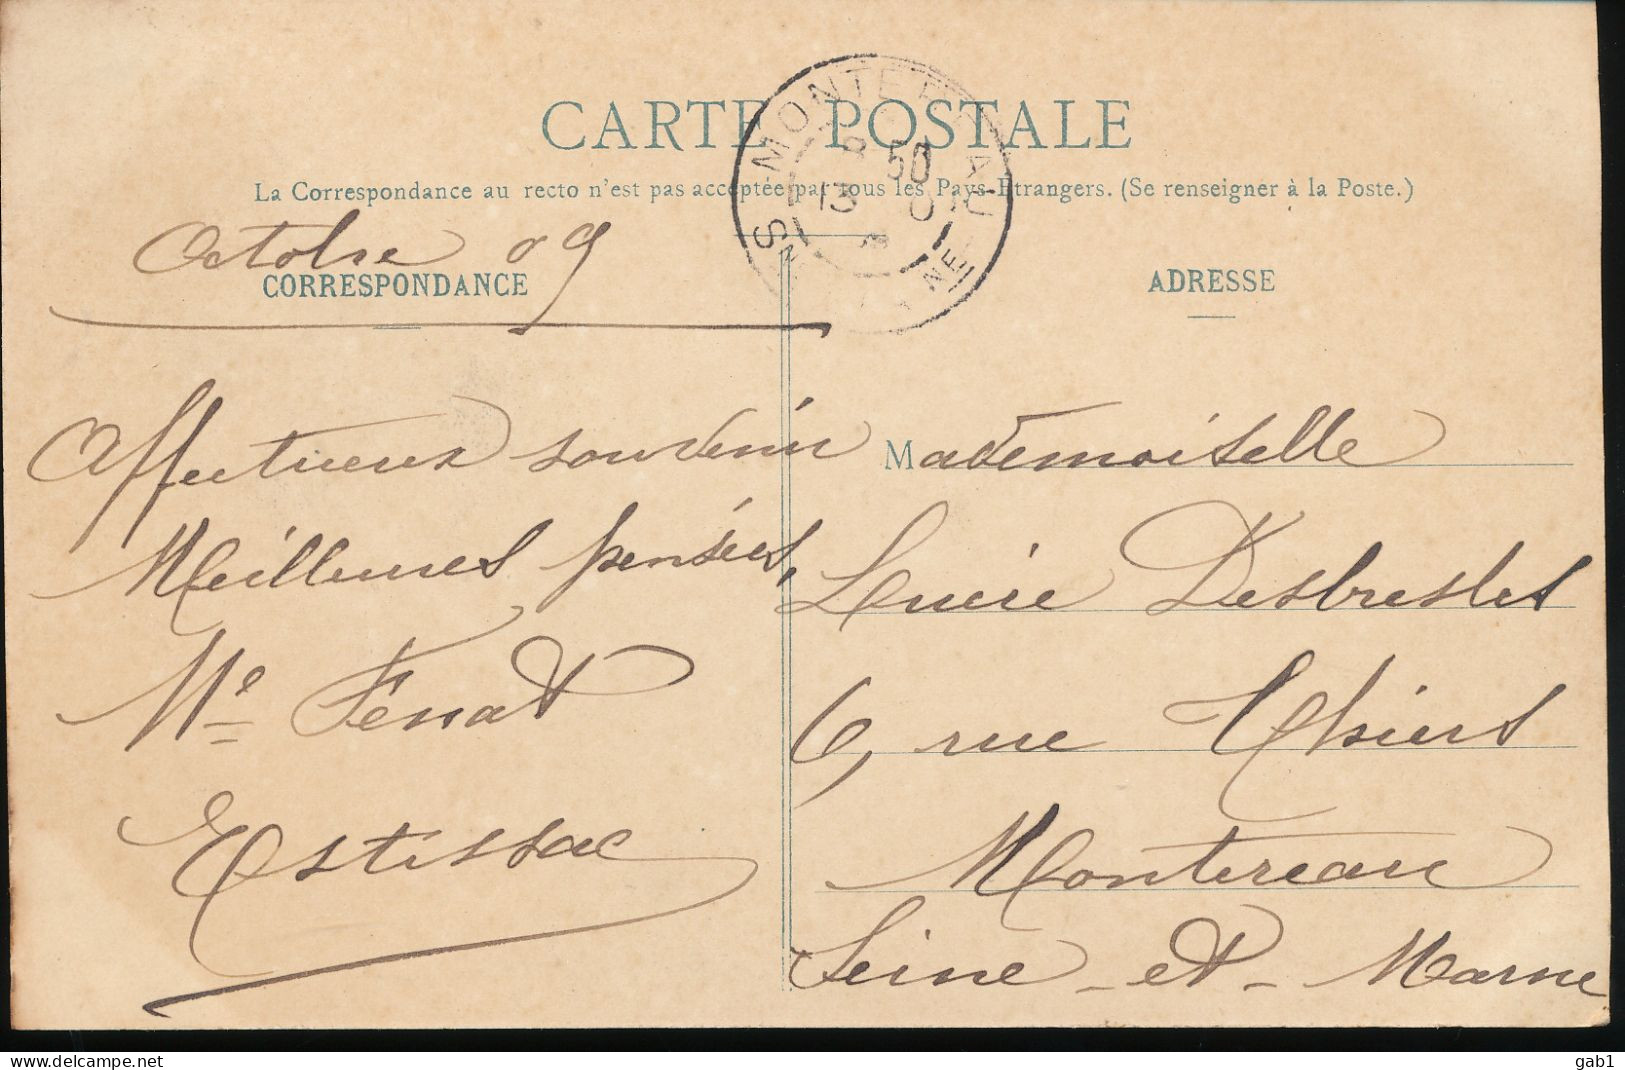 CARTE POSTALE
La Correspondance au recto n'est pas acceptée par tous les Pays Étrangers. (Se renseigner à la Poste.)
MONTEREAU
8 50
13
Octobre 09
CORRESPONDANCE
Affectueux souvenir
Meilleures pensées,
Me Fenat
Estissac
ADRESSE
Mademoiselle
Lucie Desbresles
6, rue Thiers
Montereau
Seine-et-Marne
gab1